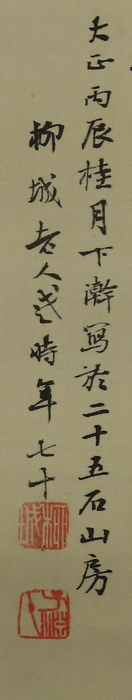 大正丙辰桂月下澣寫於二十五石山房
柳城老人時年七十
柳城